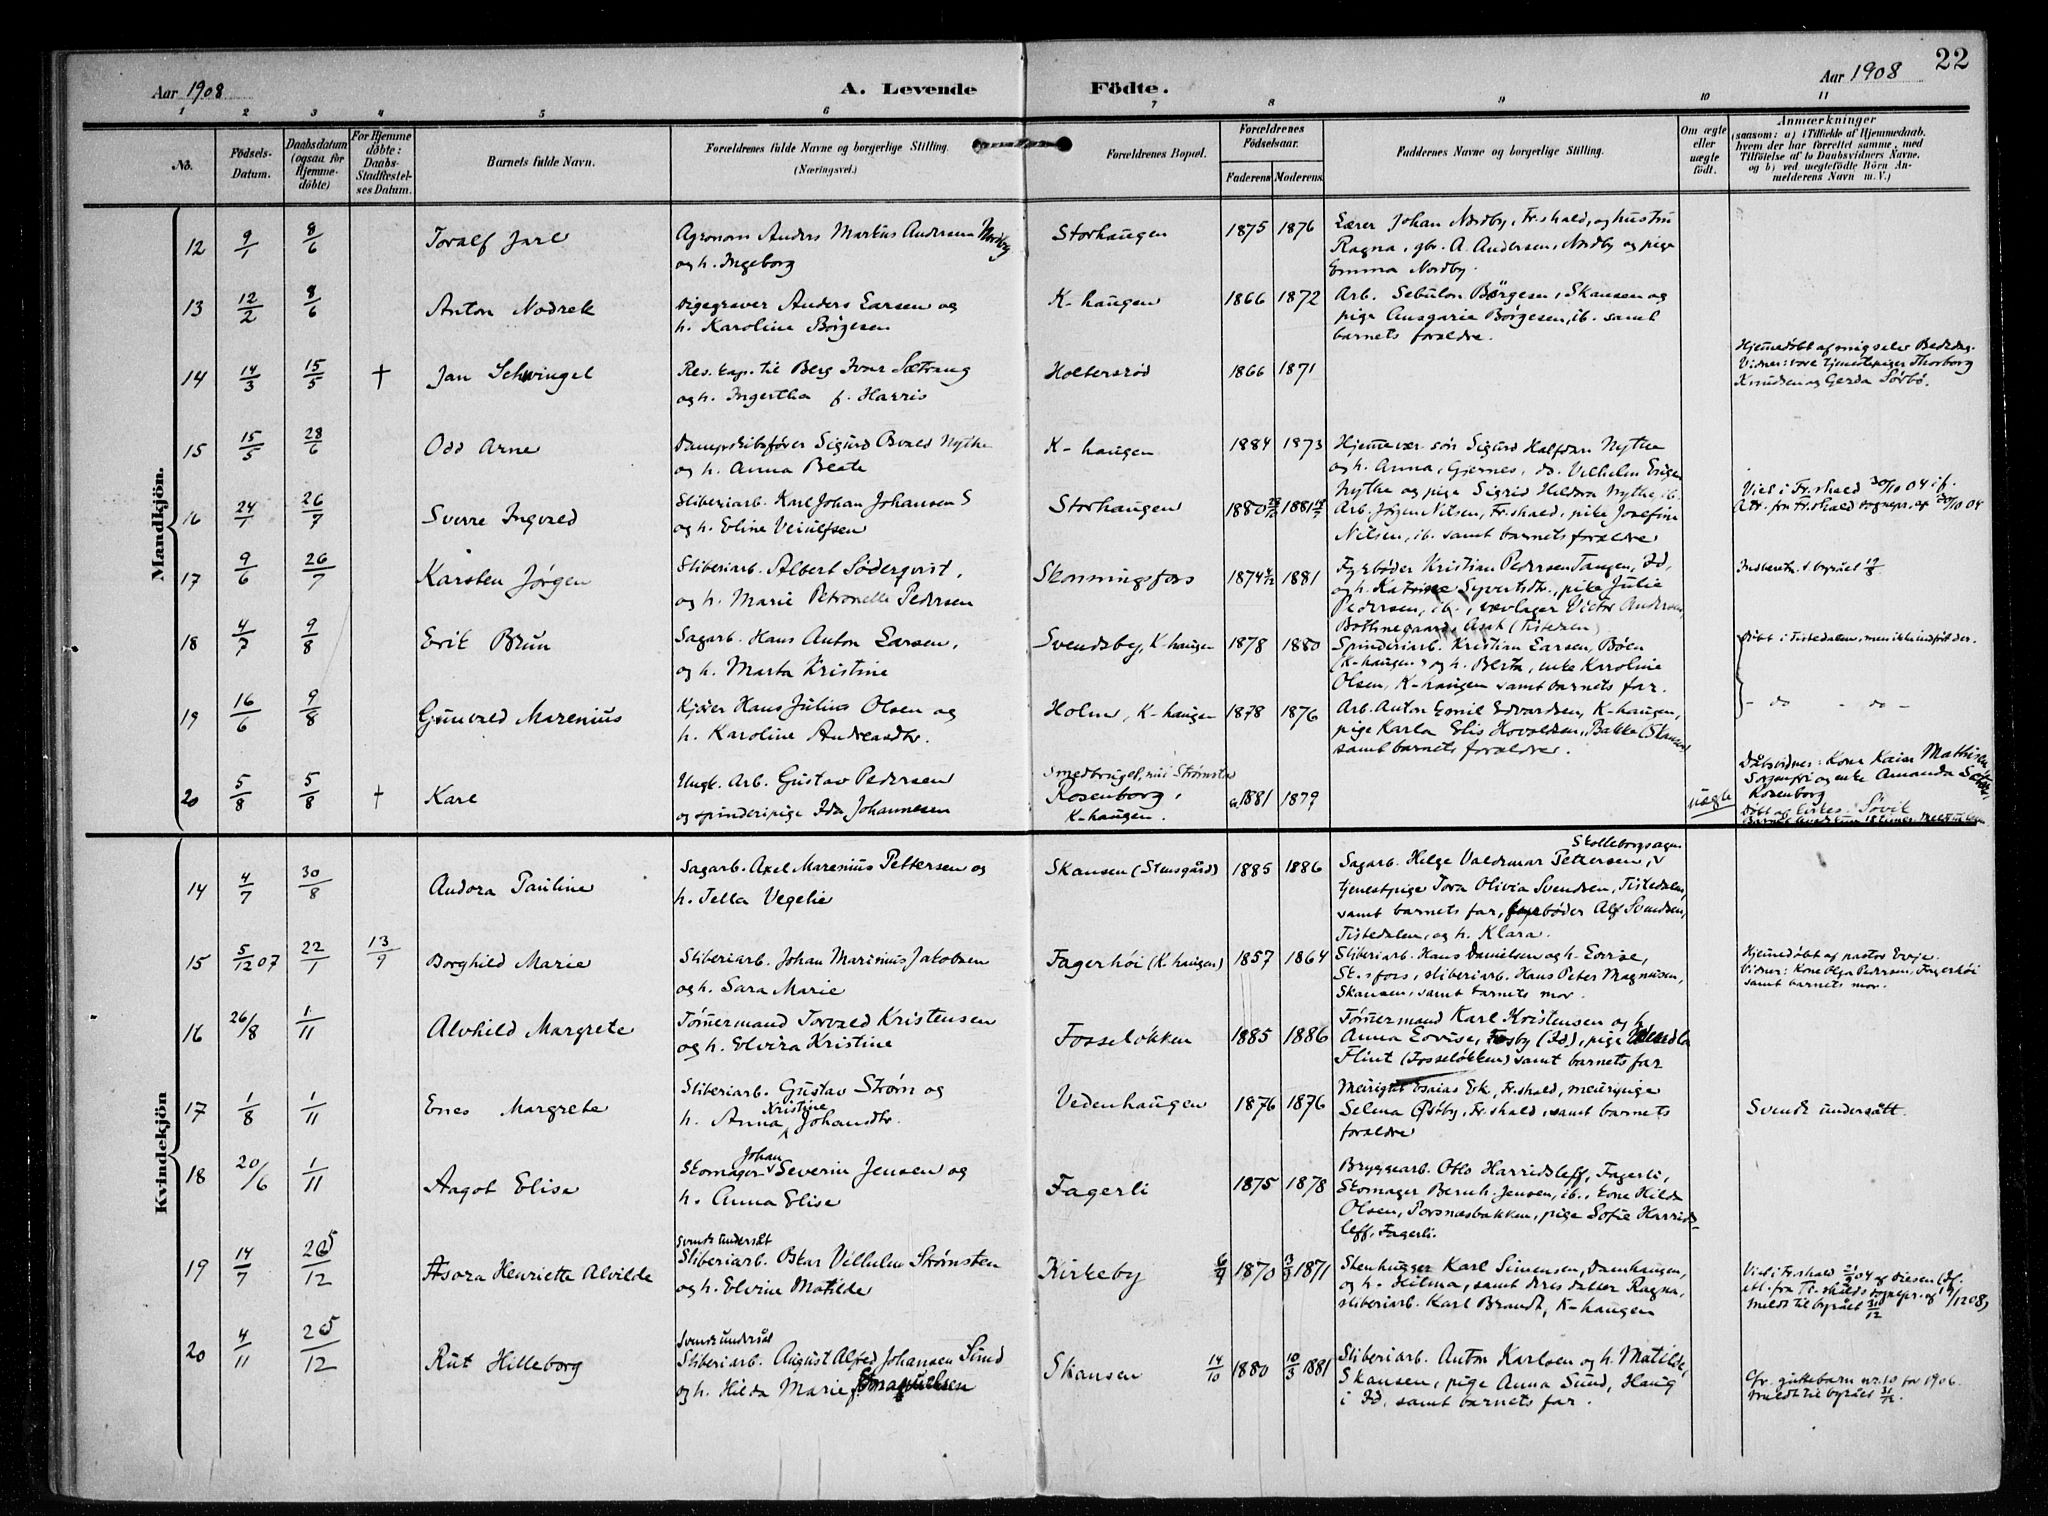 22
Aar 1908
A. Levende
Födte.
Aar 1908
1 2 3 4 5 6 7 8 9 10 11
No.
Födsels-Datum.
Daabsdatum (ogsaa for Hjemmedöbte)
For Hjemmedöbte: Daabs-Stadfestelses Datum.
Barnets fulde Navn.
Forældrenes fulde Navne og borgerlige Stilling.
(Næringsvei.)
Forældrenes Bopæl.
Forældrenes Födselsaar.
Faderens
Moderens.
Faddernes Navne og borgerlige Stilling.
Om ægte eller uægte født.
Anmærkninger
(saasom: a) i Tilfælde af Hjemmedaab, hvem der har forrettet samme, med Tilföielse af to Daabsvidners Navne, og b) ved uægtefödte Börn Anmelderens Navn m. V.)
Mandkjön.
12 9/1 8/6 Toralf Jarl
Agronom Anders Markus Andersen Nordby
og h. Ingeborg
Storhaugen 1875 1876
Lærer Johan Nordby, Fr.shald, og hustru
Ragna, gbr. A. Andersen, Nordby og pige
Emma Nordby.
13 12/2 8/6 Anton Nodrek
Digegraver Anders Larsen og
h. Karoline Børgesen
K-haugen 1866 1872
Arb. Sebulon Børgesen, Skansen og
pige Ansgarie Børgesen, ib. samt
barnets forældre.
14 14/3 15/5 † Jan Schwingel
Res. kap. til Berg Ivar Sætrang
og h. Ingertha f. Harris
Holtersrød 1866 1871
Hjemmedøbt af mig selv Bededag.
Vidner: vore tjenestepiger Thorborg
Knudsen og Gerda Sørbø.
15 15/5 28/6 Odd Arne
Dampskibsfører Sigurd Osvald Nythe
og h. Anna Beate
K-haugen 1884 1873
Hjemmevær. søn Sigurd Halfdan Nythe
og h. Anna, Gjernes, do. Vilhelm
Nythe og pige Sigrid Hildora Nythe, ib.
16 24/1 26/7 Sverre Ingvald
Sliberiarb. Karl Johan Johansen
og h. Eline Veiulfsen
Storhaugen 1880 1881
Arb. Jørgen Nilsen, Fr.shald, pike Josefine
Nilsen, ib. samt barnets forældre
Viet i Fr.shald 30/10 04 i f.
Atr. fra Fr.shald sognepr. af 20/10 04
17 9/6 26/7 Karsten Jørgen
Sliberiarb. Albert Søderqvist,
og h. Marie Petronelle Pedersen
Skonningsfors 1874 1881
Fyrbøder Kristian Pedersen Tangen, Id,
og h. Katrine Syvertsdtr., pike Julie
Pedersen, ib., vævlager Victor Andersen,
Bothnegaard, Asak (Tistedalen)
Indberettet byrået
18 4/7 9/8 Erik Brun
Sagarb. Hans Anton Larsen,
og h. Marta Kristine
Svendsby, K-haugen 1878 1880
Spinderiarb. Kristian Larsen, Bøen
(K-haugen) og h. Berta, enke Karoline
Olsen, K-haugen samt barnets far.
Døbt i Tistedalen, men ikke indført der.
19 16/6 9/8 Gunvald Marenius
Kjører Hans Julius Olsen og
h. Karoline Andreasdtr.
Holm, K-haugen 1878 1876
Arb. Anton Emil Edvardsen, K-haugen,
pige Karla Elis Hovaldsen, Bakke (Skansen)
samt barnets forældre.
- do - do -
20 5/8 5/8 † Karl
Ungk. Arb. Gustav Pedersen
og spinderipige Ida Johannesen
Smedbruget, nu Strømstad
Rosenborg,
K-haugen.
1881 1879
uægte
Dåbsvidner: Kone Kaisa Mathisen,
Sorgenfri og enke Amanda
Rosenborg
Kvindekjön
14 4/7 30/8 Andora Pauline
Sagarb. Axel Marenius Pettersen og
h. Tella Vegelie
Skansen (Stensgård) 1885 1886
Skolleborgsagen
Sagarb. Helge Valdemar Pettersen, v
tjenestpige Tora Olivia Svendsen, Tistedalen,
samt barnets far, fyrbøder Alf Svendsen,
Tistedalen, og h. Klara.
15 5/12 07 22/1 13/9 Borghild Marie
Sliberiarb. Johan Marinius Jakobsen
og h. Sara Marie
Fagerhøi (K.haugen) 1857 1864
Sliberiarb. Hans Danielsen og h. Lovise,
Sk.sfors, sliberiarb. Hans Peter Magnussen,
Skansen, samt barnets mor.
Hjemmedøbt af pastor Evje.
Vidner: Kone Olga Pedersen, Fagerhøi
samt barnets mor.
16 26/8 1/11 Alvhild Margrete
Tømmermand Torvald Kristensen
og h. Elvira Kristine
Fosseløkken 1885 1886
Tømmermand Karl Kristensen og h
Anna Lovise, Fosby (Id), pige
Flint (Fosseløkken) samt barnets far
17 1/8 1/11 Enes Margrete
Sliberiarb. Gustav Strøm og
h. Anna Kristine Johansdtr.
Vedenhaugen 1876 1876
Esaias Ek, Fr.shald,
Selma Østby, Fr.shald, samt barnets
forældre
Svensk undersått.
18 20/6 1/11 Aagot Elise
Skomager Johan Severin Jensen og
h. Anna Elise
Fagerli 1875 1878
Bryggearb. Otto Harridsleff, Fagerli,
Skomager Bernh. Jensen, ib., kone Hilda
Olsen, Torsnæsbakken, pige Sofie Harrids-
leff, Fagerli.
19 14/7 26/12 Asora Henriette Alvilde
svensk undersåt
Sliberiarb. Oskar Vilhelm Strømsten
og h. Elvine Matilde
Kirkeby 1870 1871
Stenhugger Karl Simensen, Damhaugen,
og h. Hilma, samt deres datter Ragna,
sliberiarb. Karl Brandt, K-haugen
Viet i Fr.shald 04 af
att. fra Fr.shalds sognepr. af
meldt til byrået 31/12
20 4/11 26/12 Rut Hilleborg
svensk undersåt
Sliberiarb. August Alfred Johansen Sund
og h. Hilda Marie
Skansen 14/10 1880 10/3 1881
Sliberiarb. Anton Karlsen og h. Matilde,
Skansen, pige Anna Sund, Haug
i Id, samt barnets far.
Cfr. guttebarn nr. 10 for 1906.
meldt til byrået 31/12.